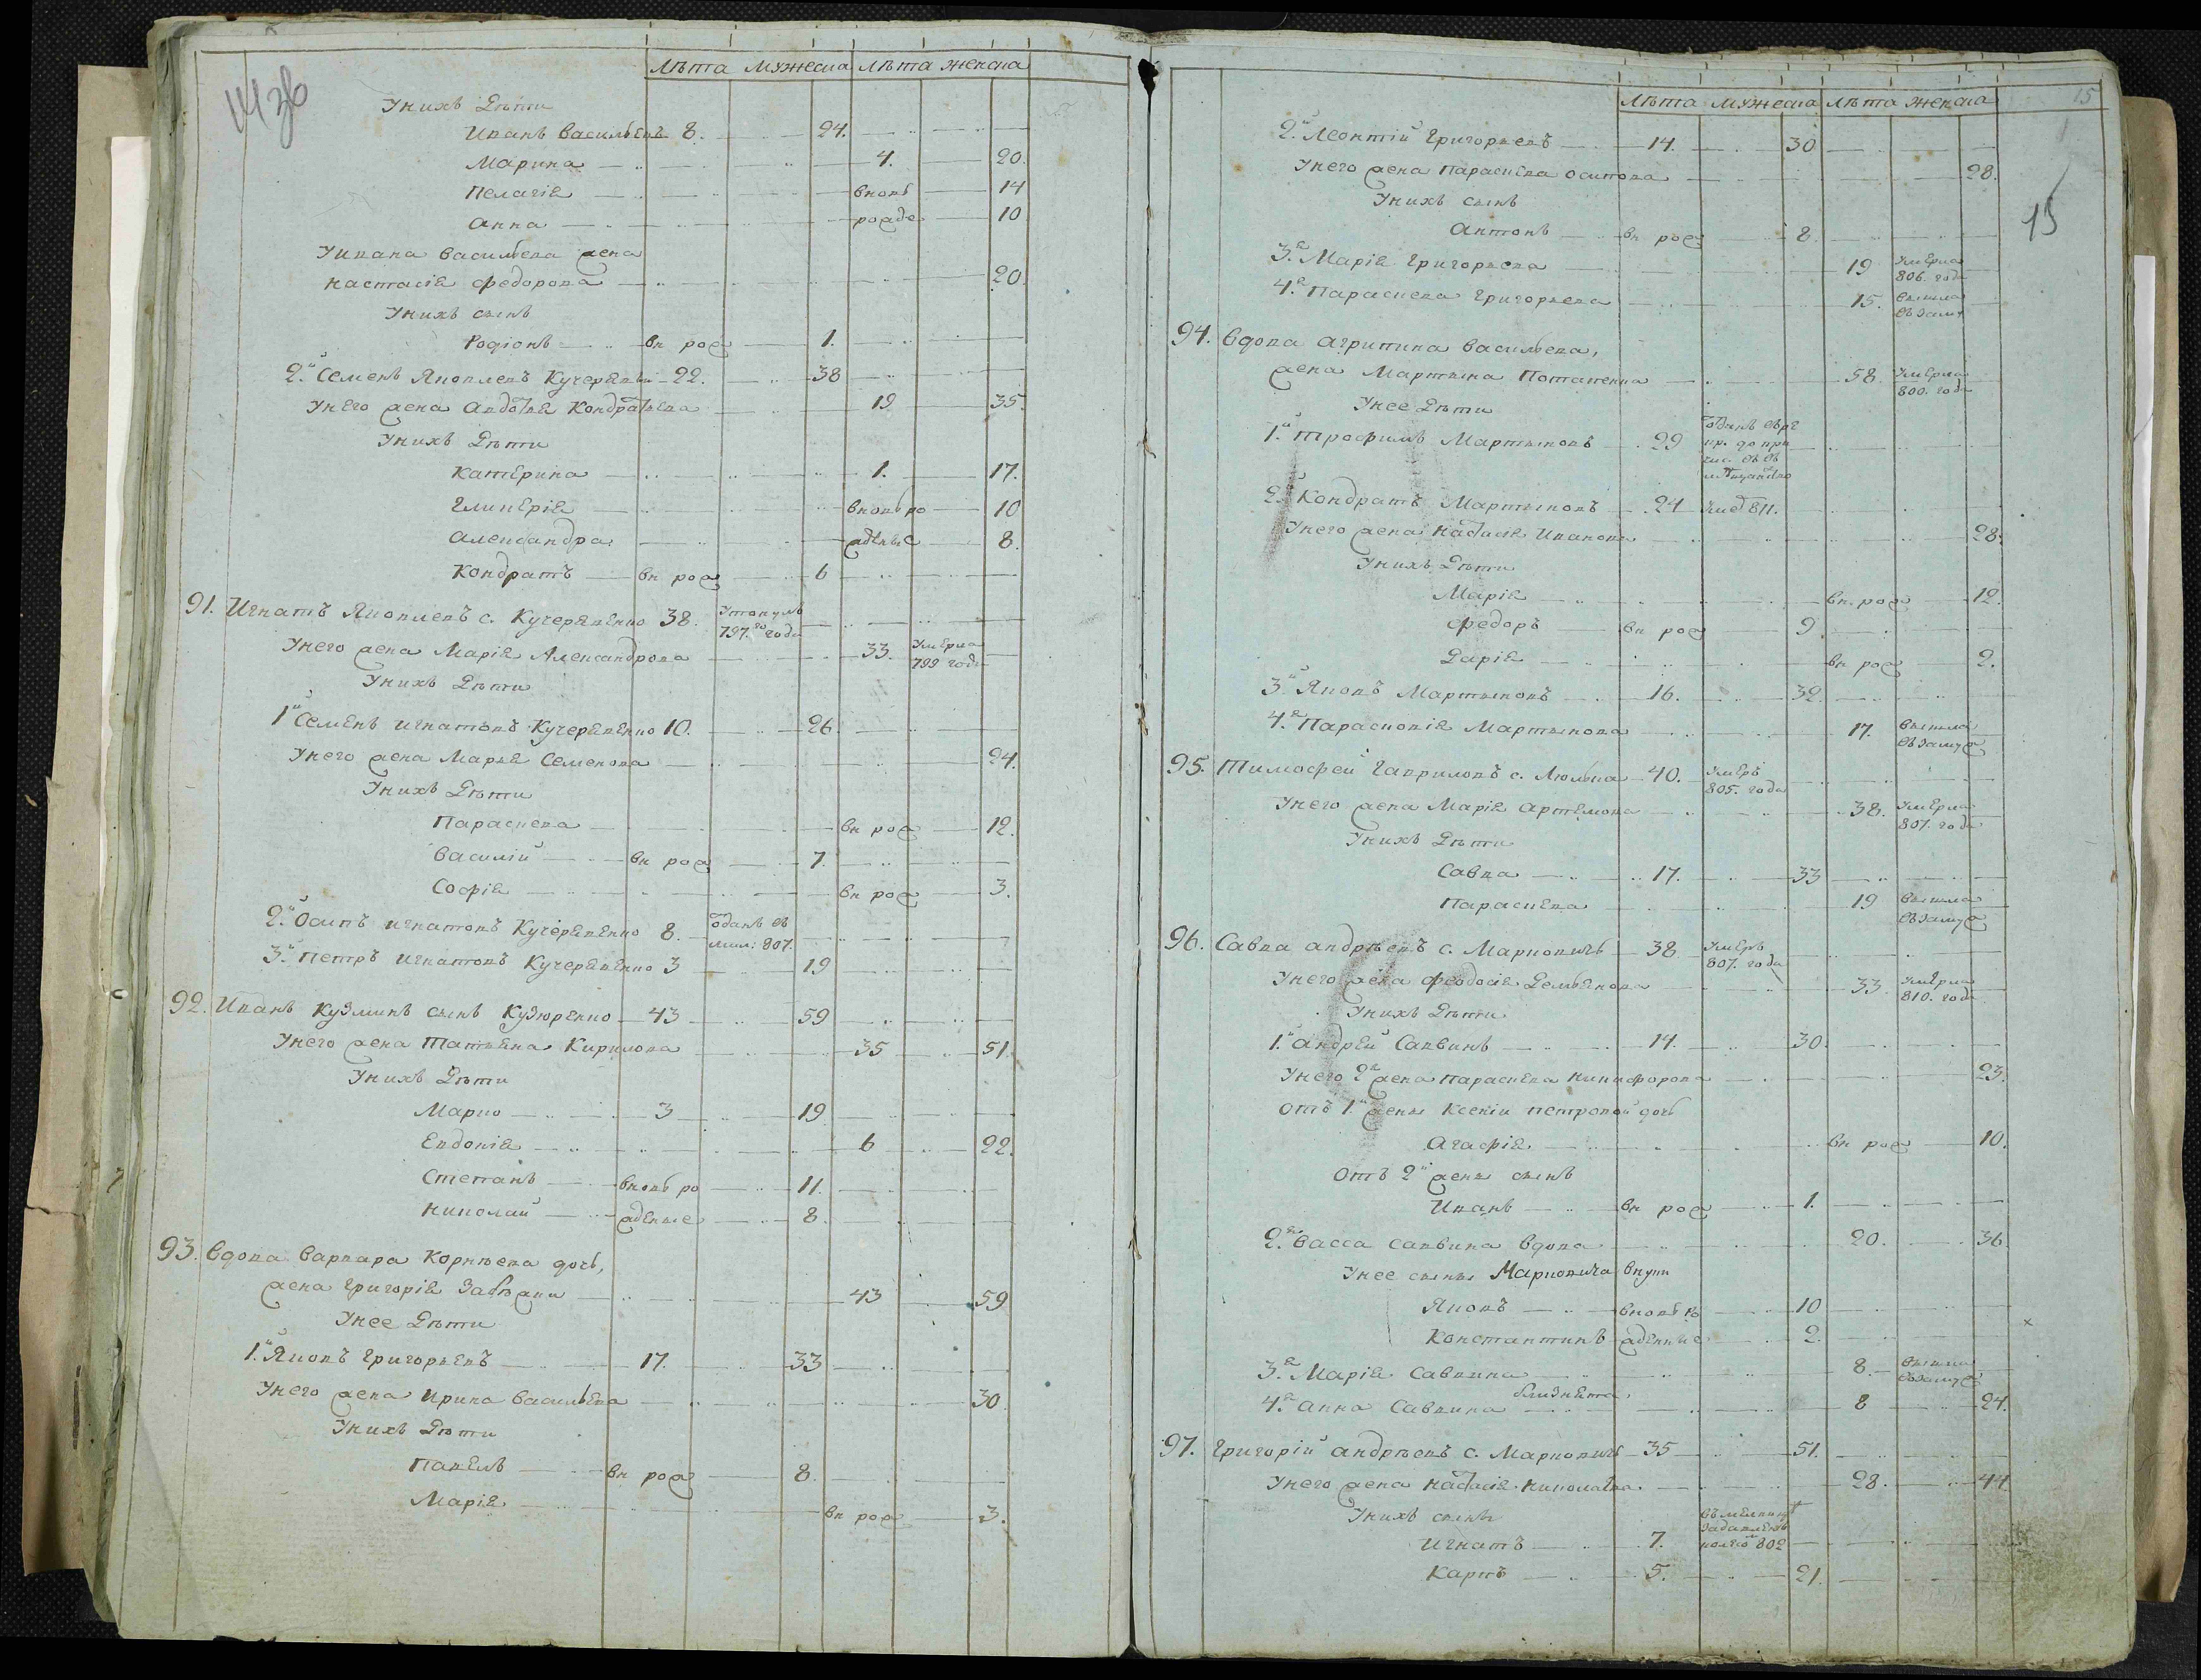 Лѣта мужеска Лѣта женска
У нихъ Дѣти
Иванъ Васильевъ 8. 24.
Марина 4. 20.
Пелагія вновь 14
Анна рожде 10
У Ивана Васильева жена
Настасія Федорова 20.
У нихъ сынъ
Родіонъ вн рож 1.
2.й Семенъ Яковлевъ 22. 38
У него жена Авдотья Кондратьева 19 35.
У нихъ Дѣти
Катерина 1. 17.
Гликерія вновь ро 10
Александра жденые 8.
Кондратъ вн рож 6
91. Игнатъ Яковлевъ с. Кучеревенко 38. Утонулъ
797.го года
У него жена Марія Александрова 33. Умерла
799 года
У нихъ Дѣти
1й Семенъ Игнатовъ Кучеревенко 10. 26.
У него жена Марья Семенова 24.
У нихъ Дѣти
Параскева вн рож 12.
Василій вн рож 7.
Софія вн рож 3.
2.й Осипъ Игнатовъ Кучеревенко 8. Отданъ въ
мил: 807.
3.й Петръ Игнатовъ Кучеревенко 3 19
92. Иванъ Кузминъ сынъ Кузюренко 43 59
У него жена Татьяна Кирилова 35 51.
У нихъ Дѣти
Марко 3 19
Евдокія 6 22.
Степанъ вновь ро 11.
Николай жденые 8.
93. Вдова Варвара Корнѣева дочь,
жена Григорія 43 59
У нее Дѣти
1.й Яковъ Григорьевъ 17. 33
У него жена Ирина Васильева 30.
У нихъ Дѣти
Павелъ вн рож 8.
Марія вн рож 3.
15
Лѣта мужеска Лѣта женска
2.й Леонтій Григорьевъ 14. 30
У него жена Параскева Осипова 28.
У нихъ сынъ
15
Антонъ вн рож 8.
3.я Марія Григорьева 19 Умерла
806. года
4.я Параскева Григорьева 15. вышла
въ замуж
94. Вдова Агрипина Васильева,
жена Мартына Потапенка 58. Умерла
800. года
У нее Дѣти
1.й Трофимъ Мартыновъ 29 Отданъ
2.й Кондратъ Мартыновъ 24 811.
У него жена Настасія Иванова 28.
У нихъ Дѣти
Марія вн. рож 12.
Федоръ вн рож 9.
Дарія вн рож 2.
3.й Яковъ Мартыновъ 16. 32.
4.я Парасковія Мартынова 17. вышла
въ замуж
95. Тимофей Гавриловъ с. Люлька 40. Умеръ
805. года
У него жена Марія Артемова 38. Умерла
807. года
У нихъ Дѣти
Савка 17. 33
Параскева 19 вышла
въ замуж
96. Савка Андрѣевъ с. Марковичь 38 Умеръ
807. года
У него жена Феодосія Демьянова 33 Умерла
810. года
У нихъ Дѣти
1.й Андрей Саввинъ 14. 30.
У него 2я жена Параскева Никифорова 23.
Отъ 1.й жены Ксеніи Петровой дочь
Агафія вн рож 10.
Отъ 2й жены сынъ
Иванъ вн рож 1.
2.я Васса Саввина вдова 20. 36.
У нее сыны Марковича внуки
Яковъ вновь 10
Константинъ жденные 2.
3.я Марія Саввина 8. вышла
въ замуж
близнята
4.я Анна Саввина 8 24.
97. Григорій Андрѣевъ с. Марковичь 35 51.
У него жена Настасія 28. 44
У нихъ сыны
Игнатъ 7. 802
Карпъ 5. 21.